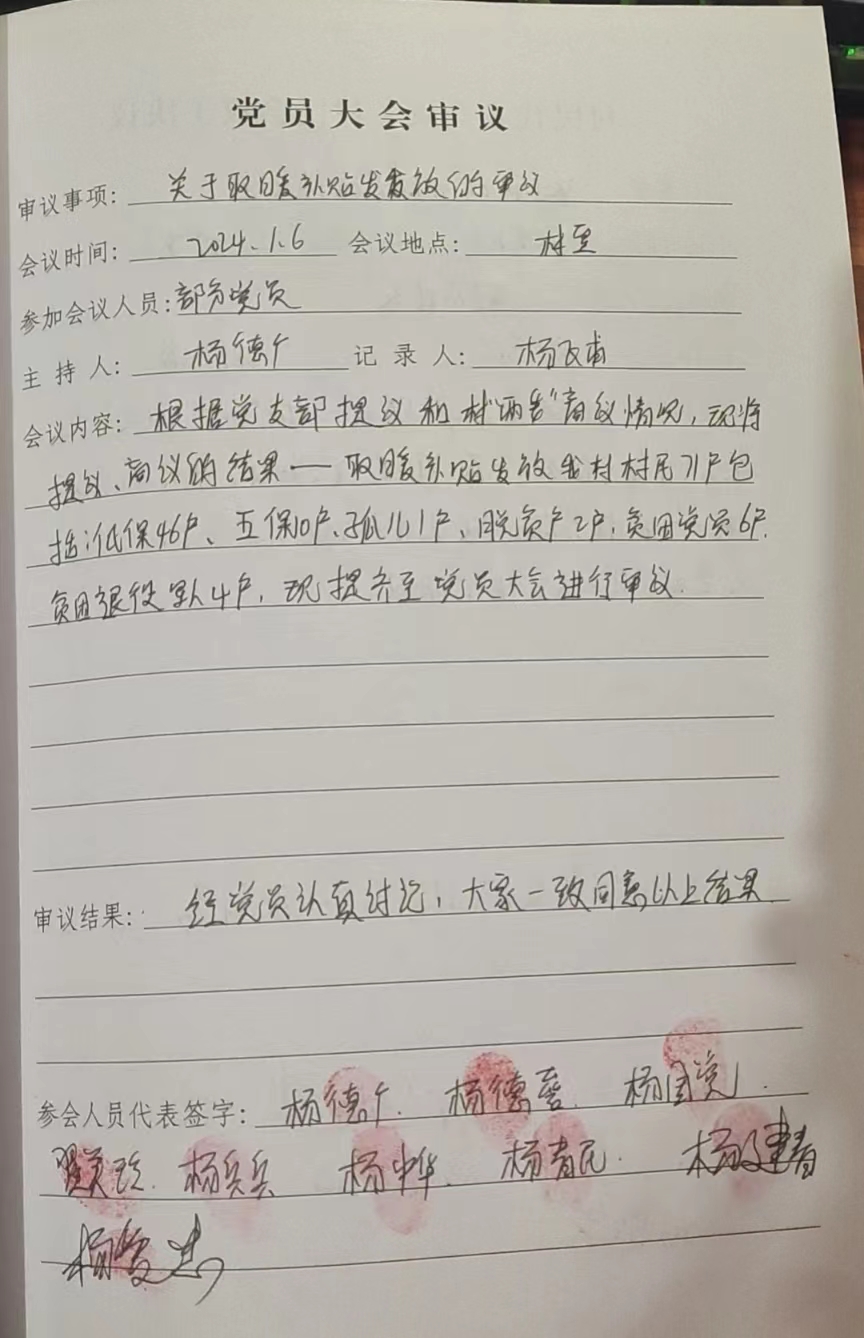 党员大会审议
审议事项: 关于取暖补贴发放的审议
会议时间: 2024.1.6 会议地点: 村室
参加会议人员: 部分党员
主持人: 杨德 记录人: 杨
会议内容: 根据党支部提议和村"两委"商议情况,现将
提议、商议的结果一取暖补贴发放我村村民71户包
括:低保46户、五保10户、孤儿1户、脱贫户2户,贫困党员6户.
贫困退役军人4户,现提交至党员大会进行审议.
审议结果: 经党员认真讨论,大家一致同意以上结果
参会人员代表签字: 杨德 杨德 杨国党
杨兵兵 杨中华. 杨青民. 杨建春
杨